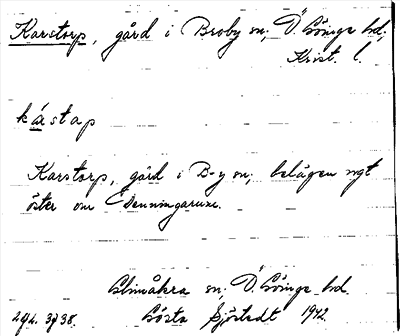 Karstorp, gård i Broby sn; Ö. Göinge hd;
Krist. l.
kárstap
Karstorp, gård i B-y sn; belägen ngt
öster om
Glimåkra sn, Ö. Göinge hd
Gösta Sjöstedt 1942.